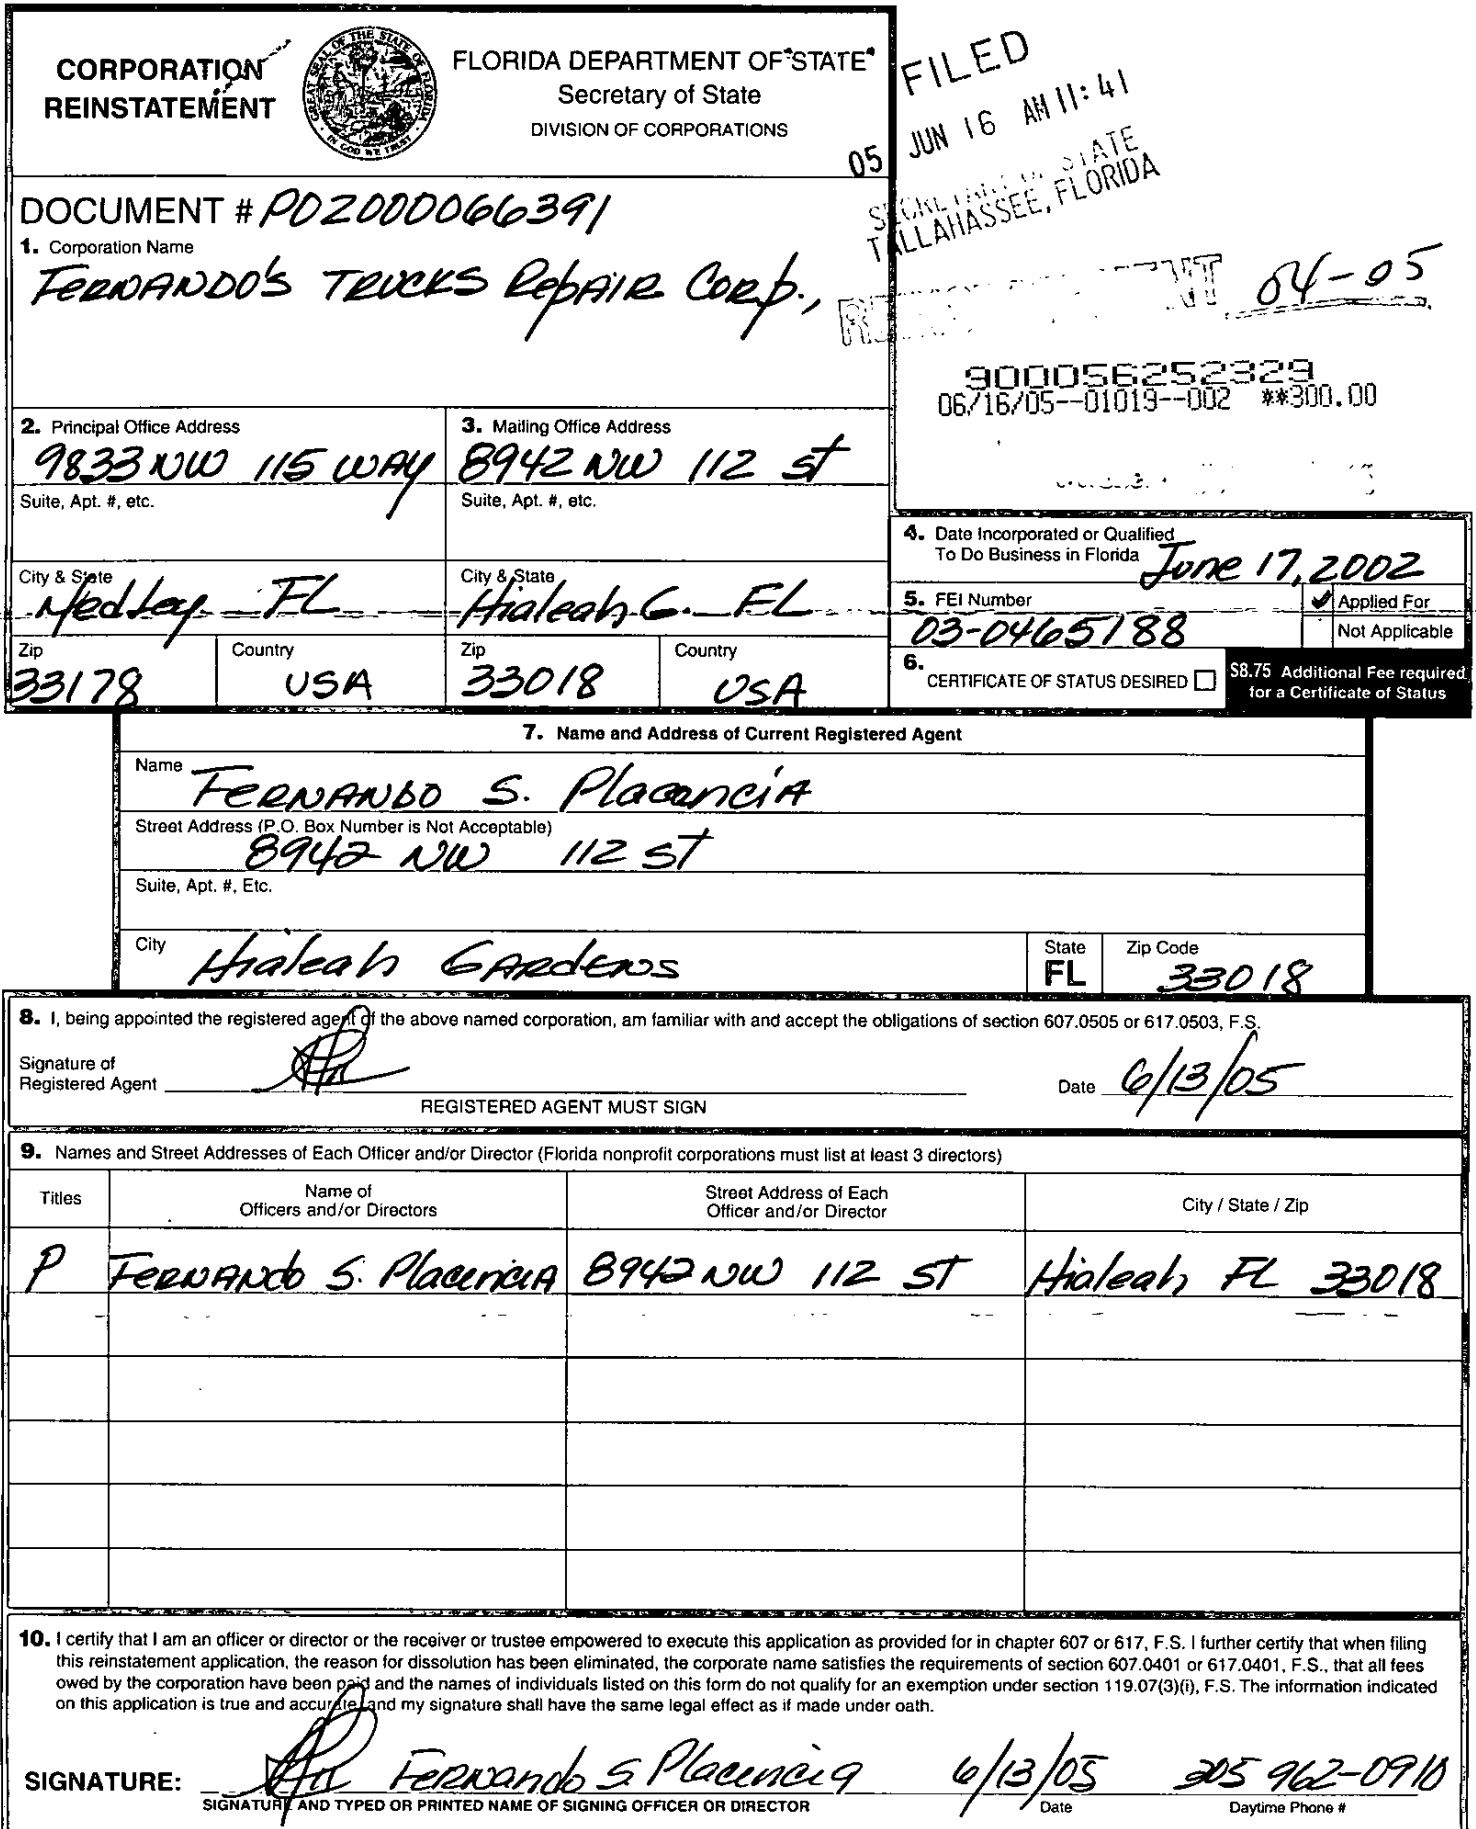 CORPORATION
REINSTATEMENT
GREAT SEAL OF THE STATE OF FLORIDA
IN GOD WE TRUST
FLORIDA DEPARTMENT OF STATE
Secretary of State
DIVISION OF CORPORATIONS
FILED
05 JUN 16 AM 11:41
SECRETARY OF STATE
TALLAHASSEE, FLORIDA
DOCUMENT # P02000066391
1. Corporation Name
FERNANDO'S TRUCKS REpAIR CORp.,
04-05
900056252329
06/16/05--01019--002 **300.00
2. Principal Office Address
9833 NW 115 WAY
Suite, Apt. #, etc.
City & State
Medley FL
Zip
33178
Country
USA
3. Mailing Office Address
8942 NW 112 st
Suite, Apt. #, etc.
City & State
Hialeah G. FL
Zip
33018
Country
USA
4. Date Incorporated or Qualified
To Do Business in Florida June 17, 2002
5. FEI Number
03-0465188
✓ Applied For
Not Applicable
6. CERTIFICATE OF STATUS DESIRED
$8.75 Additional Fee required
for a Certificate of Status
7. Name and Address of Current Registered Agent
Name FERNANDO S. PlacenciA
Street Address (P.O. Box Number is Not Acceptable)
8942 NW 112 ST
Suite, Apt. #, Etc.
City Hialeah GARdENS
State
FL
Zip Code
33018
8. I, being appointed the registered agent of the above named corporation, am familiar with and accept the obligations of section 607.0505 or 617.0503, F.S.
Signature of
Registered Agent
Date 6/13/05
REGISTERED AGENT MUST SIGN
9. Names and Street Addresses of Each Officer and/or Director (Florida nonprofit corporations must list at least 3 directors)
Titles
Name of
Officers and/or Directors
Street Address of Each
Officer and/or Director
City / State / Zip
P FERNANdo S. PlacenciA 8942 NW 112 ST Hialeah, FL 33018
10. I certify that I am an officer or director or the receiver or trustee empowered to execute this application as provided for in chapter 607 or 617, F.S. I further certify that when filing
this reinstatement application, the reason for dissolution has been eliminated, the corporate name satisfies the requirements of section 607.0401 or 617.0401, F.S., that all fees
owed by the corporation have been paid and the names of individuals listed on this form do not qualify for an exemption under section 119.07(3)(i), F.S. The information indicated
on this application is true and accurate and my signature shall have the same legal effect as if made under oath.
SIGNATURE: Fernando S. Placencia 6/13/05 305 962-0910
SIGNATURE AND TYPED OR PRINTED NAME OF SIGNING OFFICER OR DIRECTOR
Date
Daytime Phone #